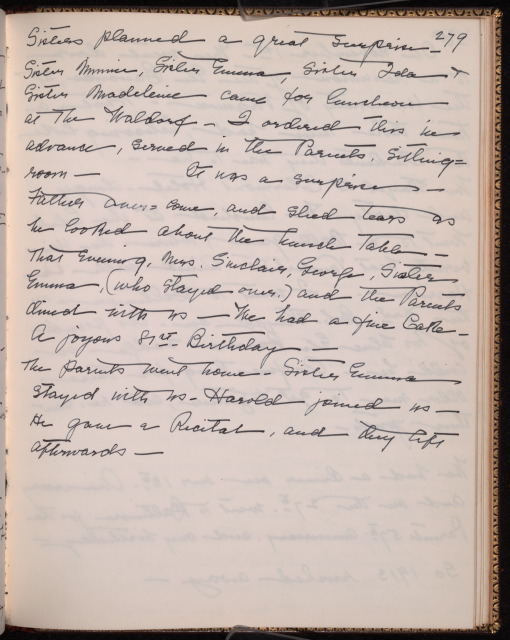 279
Sisters planned a great surprise —
Sister Minnie, Sister Emma, Sister Ida &
Sister Madeleine came for luncheon
at The Waldorf — I ordered this in
advance, served in the Parents, Sitting=
room — It was a surprise —
Father over=come, and shed tears as
he looked about the lunch table —
That Evening, Mrs. Sinclair, George, Sister
Emma, (who stayed over.) and the Parents
dined with us — We had a fine Cake —
A joyous 81st. Birthday —
The Parents went home — Sister Emma
stayed with us — Harold joined us —
He gave a Recital, and they left
afterwards —